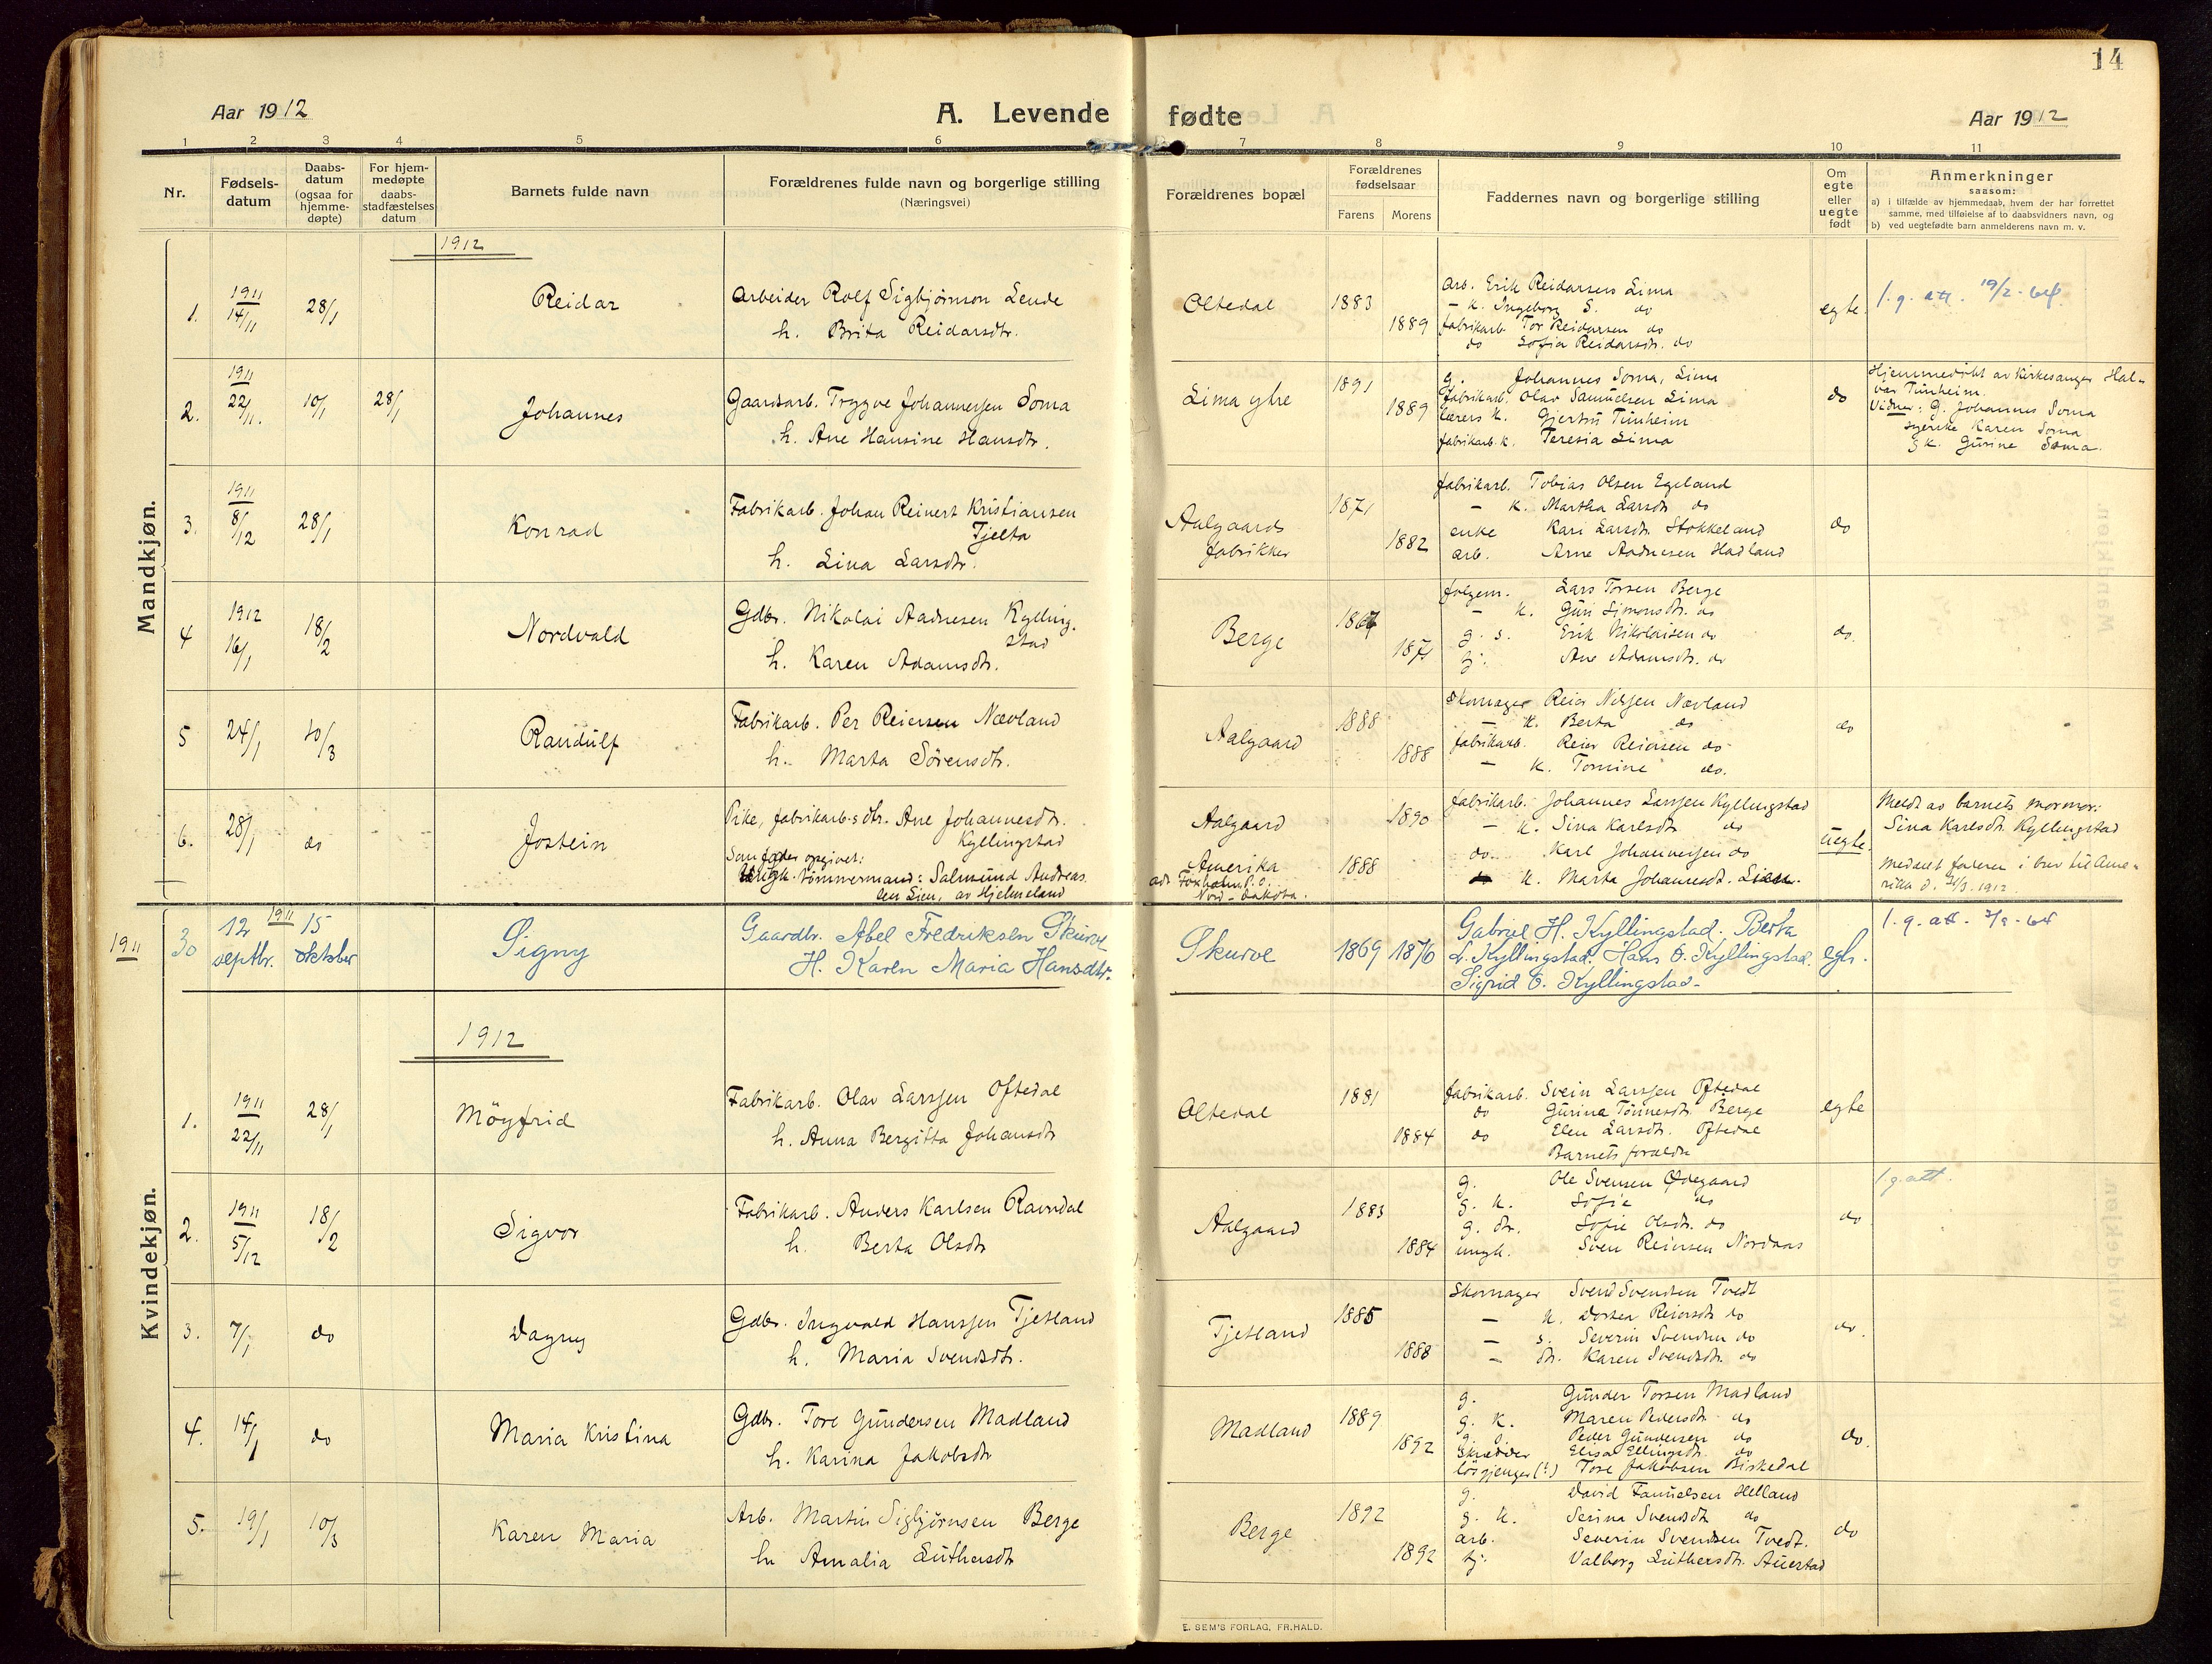 14
Aar 1912
A. Levende fødte
Aar 1912
1 2 3 4 5 6 7 8 9 10 11
Nr.
Fødsels-
datum
Daabs-
datum
(ogsaa for
hjemme-
døpte)
For hjem-
medøpte
daabs-
stadfæstelses
datum
Barnets fulde navn
Forældrenes fulde navn og borgerlige stilling
(Næringsvei)
Forældrenes bopæl
Forældrenes
fødselsaar
Farens Morens
Faddernes navn og borgerlige stilling
Om
egte
eller
uegte
født
Anmerkninger
saasom:
a) i tilfælde av hjemmedaab, hvem der har forrettet
samme, med tilføielse af to daabsvidners navn, og
b) ved uegtefødte barn anmelderens navn m. v.
Mandkjøn.
1912
1. 1911 14/11 28/1 Reidar
Arbeider Rolf Sigbjörnson Lende
h. Brita Reidarsdtr.
Oltedal 1883 1889
Arb. Erik Reidarsens Lima
– k. Ingeborg S. do
fabrikarb. Tor Reidarsen do
do Sofia Reidarsdtr. do
egte.
1. g. att. 19/2-64
2. 1911 22/11. 10/1 28/1 Johannes
Gaardsarb. Trygve Johannesen Soma
h. Ane Hansine Hansdtr.
Lima yhre 1891 1889
g. Johannes Soma, Lima
fabrikarb. Olav Samuelsen Lima
lærers k. Gjertru Tunheim
fabrikarb. k. Teresia Lima
do
Hjemmedöbt av Kirkesanger Hal-
vor Tunheim.
Vidner: g. Johannes Soma
syerske Karen Soma
g k. Gurine Soma.
3. 1911 8/12 28/1 Konrad
Fabrikarb. Johan Reinert Kristiansen
Tjelta
h. Lina Larsdtr.
Aalgaards
fabrikker
1871 1882
fabrikarb. Tobias Olsen Egeland
– k. Martha Larsdtr do
enke Kari Larsdtr. Stokkeland
arb. Arne Aadnesen Hadland
do
4 1912 16/1 18/2 Nordvald
Gdbr. Nikolai Aadnesen Kylling-
stad
h. Karen Adamsdtr.
Berge 1867 1871
folgem. Lars Torsen Berge
– k. Guri Simonsdtr. do
g. s. Erik Nikolaisen do
tj. Ane Adamsdtr. do
do.
5 24/1 10/3 Randulf
Fabrikarb. Per Reiersen Nævland
h. Marta Sörensdtr.
Aalgaard 1888 1888
Skomager Reier Nilsen Nævland
– k. Berta do
fabrikarb. Reier Reiersen do
– k. Tomine do.
do
6. 28/1 do Jostein
Pike, fabrikarb.s dtr. Ane Johannesdtr.
Kyllingstad
Som fader opgivet:
Ungk. tömmermand: Salmund Andreas
sen Lien, av Hjelmeland
Aalgaard
Amerika
adr. Foxholm P.O.
Nord-Dakota.
1890 1888
fabrikarb. Johannes Larsen Kyllingstad
– k. Sina Karlsdtr do
do. Karl Johannesen do
k. Marta Johannesdtr. Lien.
uegte
Meldt av barnets mormor:
Sina Karlsdtr. Kyllingstad
Meddelt faderen i brev til Ame-
rika d. 30/3. 1912.
1911 30 12 septbr. 1911 15 oktober Signy
Gaardbr. Abel Fredriksen Skurve
H. Karen Maria Hansdtr.
Skurve 1869 1876
Gabriel H. Kyllingstad. Berta
L. Kyllingstad. Hans O. Kyllingstad.
Sigrid O. Kyllingstad-
egte.
Kvindekjøn.
1912
1. 1911 22/11 28/1 Möyfrid
Fabrikarb. Olav Larsen Oftedal
h. Anna Bergitta Johansdtr
Oltedal 1881 1884
fabrikarb. Svein Larsen Oftedal
do Gurina Tönnesdtr. Berge
do Elen Larsdtr. Oftedal
Barnets forældre
egte
2. 1911 5/12 18/2 Sigvor
Fabrikarb. Anders Karlsen Ravndal
h. Berta Olsdtr
Aalgaard 1883 1884
g. Ole Svensen Ødegaard
g. k. Sofie do
g. dtr. Sofie Olsdtr. do
ungk. Sven Reiersen Nordaas
do
1. g. att.
3. 7/1 do Dagny
Gdbr. Ingvald Hansen Tjetland
h. Maria Svendsdtr.
Tjetland 1885 1888
Skomager Svend Svendsen Tvedt
– k. Dortea Reiersdtr do
– s. Severin Svendsen do
– dtr. Karen Svendsdtr. do
do.
4. 14/1 do Maria Kristina
Gdbr. Tore Gundersen Madland
h. Karina Jakobsdtr
Madland 1889 1892
g. Gunder Torsen Madland
g. k. Maren Pedersdtr. do
g. s. Peder Gundersen do
Skrædder Elisa Ellingsdtr. do
lösgjenger(?) Tore Jakobsen Birkedal
do.
5. 19/1 10/3 Karen Maria
Arb. Martin Sigbjörnsen Berge
h. Amalia Luthersdtr
Berge 1892 1892
g. David Samuelsen Helland
g. k. Serina Svendsdtr do
arb. Severin Svendsen Tvedt.
tj. Valborg Luthersdtr. Auestad
do
E. SEM'S FORLAG, FR.HALD.